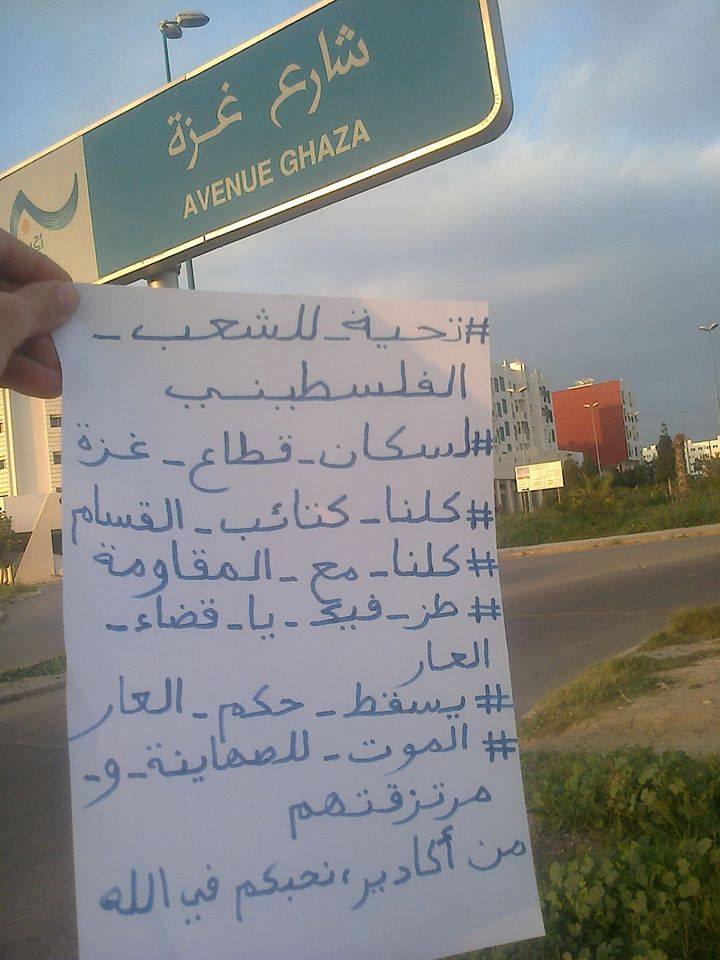 شارع غزة
AVENUE GHAZA
#تحية_للشعب_
الفلسطيني
#لسكان_قطاع_غزة
#كلنا_كتائب_القسام
#كلنا_مع_المقاومة
#طز_فيك_يا_قضاء_
العار
#يسقط_حكم_العار
#الموت_للصهاينة_و_
مرتزقتهم
من أكادير، نحبكم في الله